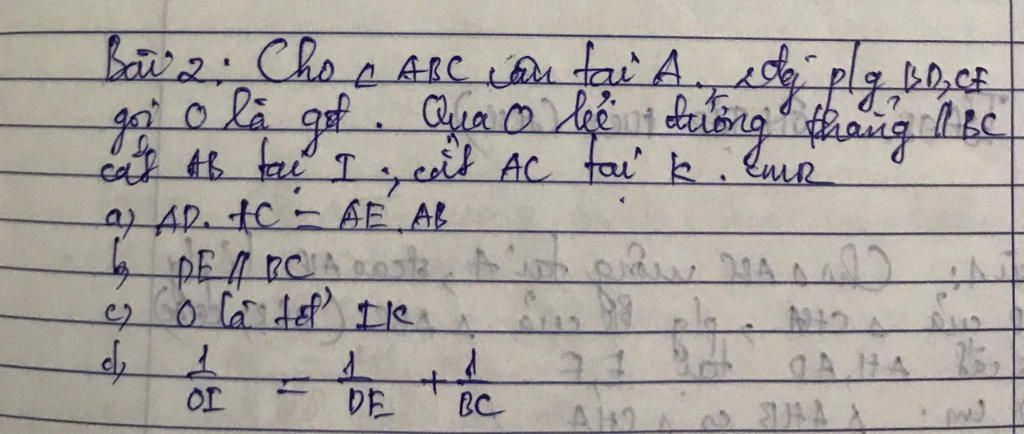 Bài 2: Cho △ ABC cân tại A, các đg p/g BD, CE
gọi O là gđ. Qua O kẻ đường thẳng // BC
cắt AB tại I, cắt AC tại K. CMR
a) AD. AC = AE. AB
b) DE // BC
c) O là tđ IK
d, 1/OI = 1/DE + 1/BC